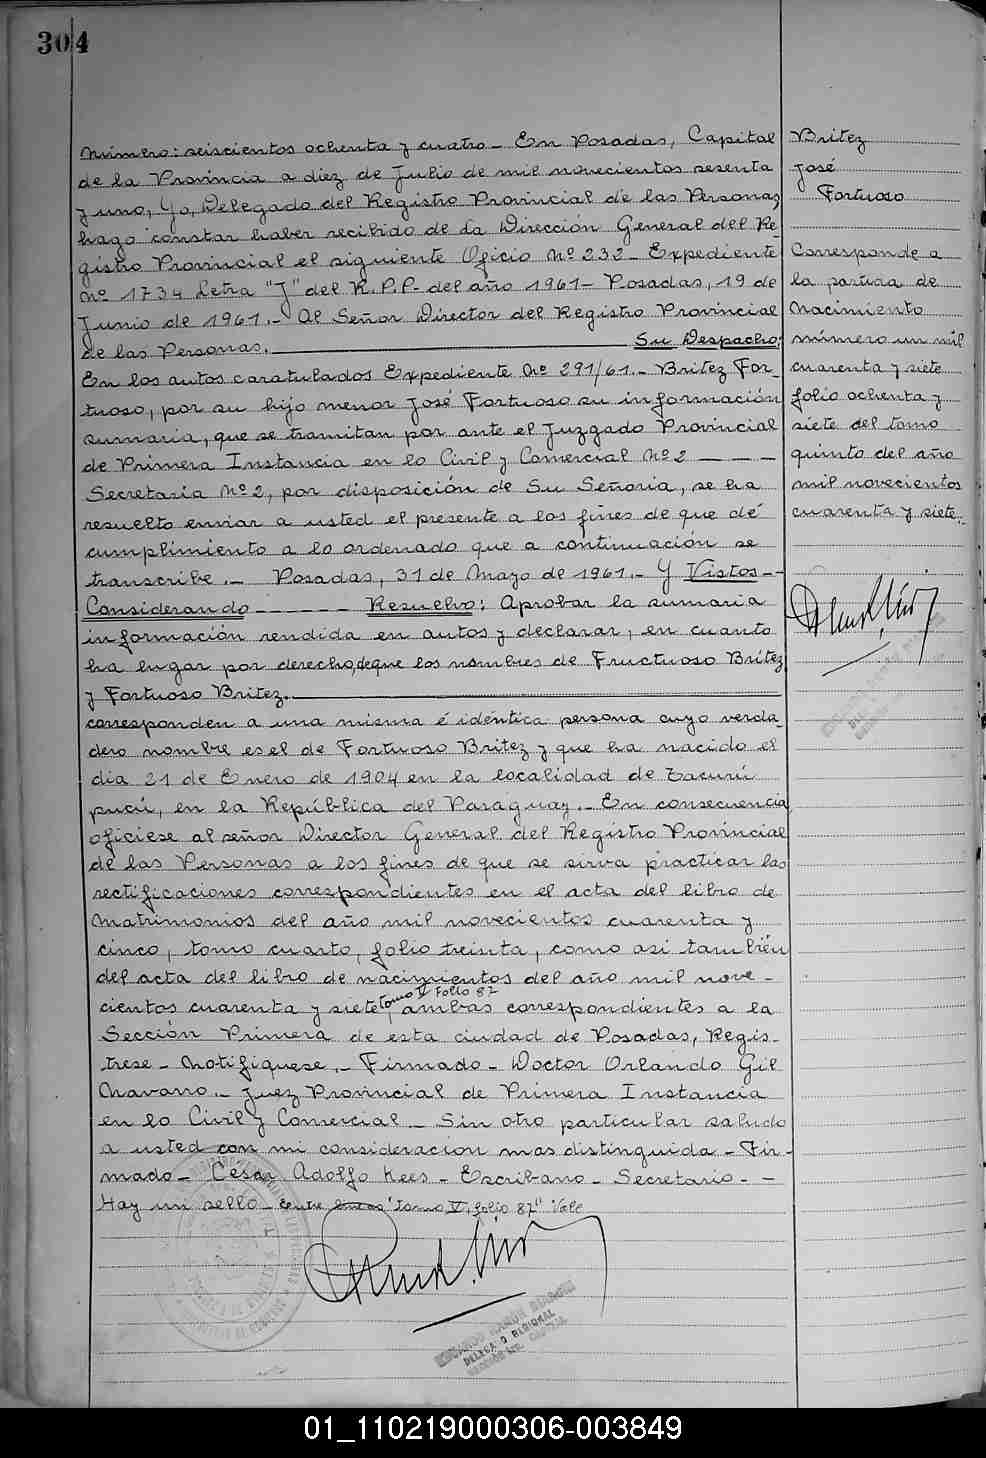 304
Número: seiscientos ochenta y cuatro- En Posadas, Capital
de la Provincia a diez de Julio de mil novecientos sesenta
y uno, Yo, Delegado del Registro Provincial de las Personas
hago constar haber recibido de la Dirección General del Re-
gistro Provincial el siguiente Oficio Nº 232- Expediente
Nº 1734 Letra "J" del R.P.P- del año 1961- Posadas, 19 de
Junio de 1961.- Al Señor Director del Registro Provincial
de las Personas. Su Despacho:
En los autos caratulados Expediente Nº 291/61.- Britez For-
tuoso, por su hijo menor José Fortuoso su información
sumaria, que se tramitan por ante el Juzgado Provincial
de Primera Instancia en lo Civil y Comercial Nº 2 - - -
Secretaría Nº 2, por disposición de Su Señoria, se ha
resuelto enviar a usted el presente a los fines de que dé
cumplimiento a lo ordenado que a continuación se
transcribe.- Posadas, 31 de Mayo de 1961.- Y Vistos--
Considerando - - - - - - Resuelvo: Aprobar la sumaria
información rendida en autos y declarar, en cuanto
ha lugar por derecho, deque los nombres de Fructuoso Britez
y Fortuoso Britez.
corresponden a una misma é idéntica persona cuyo verda-
dero nombre es el de Fortuoso Britez y que ha nacido el
dia 21 de Enero de 1904 en la localidad de Tacurú
pucú, en la República del Paraguay.- En consecuencia
oficiese al señor Director General del Registro Provincial
de las Personas a los fines de que se sirva practicar las
rectificaciones correspondientes en el acta del libro de
Matrimonios del año mil novecientos cuarenta y
cinco, tomo cuarto, folio treinta, como asi también
del acta del libro de nacimientos del año mil nove-
tomo V Folio 87
cientos cuarenta y siete, ambas correspondientes a la
Sección Primera de esta ciudad de Posadas, Regis-
trese- Notifiquese.- Firmado- Doctor Orlando Gil
Navarro.- Juez Provincial de Primera Instancia
en lo Civil y Comercial- Sin otro particular saludo
a usted con mi consideracion mas distinguida- Fir-
mado- César Adolfo Kees- Escribano- Secretario- -
Hay un sello- "tomo V, folio 87" Vale
DELEGADO REGIONAL
Britez
José
Fortuoso
Corresponde a
la partida de
Nacimiento
número un mil
cuarenta y siete
folio ochenta y
siete del tomo
quinto del año
mil novecientos
cuarenta y siete.
01_110219000306-003849